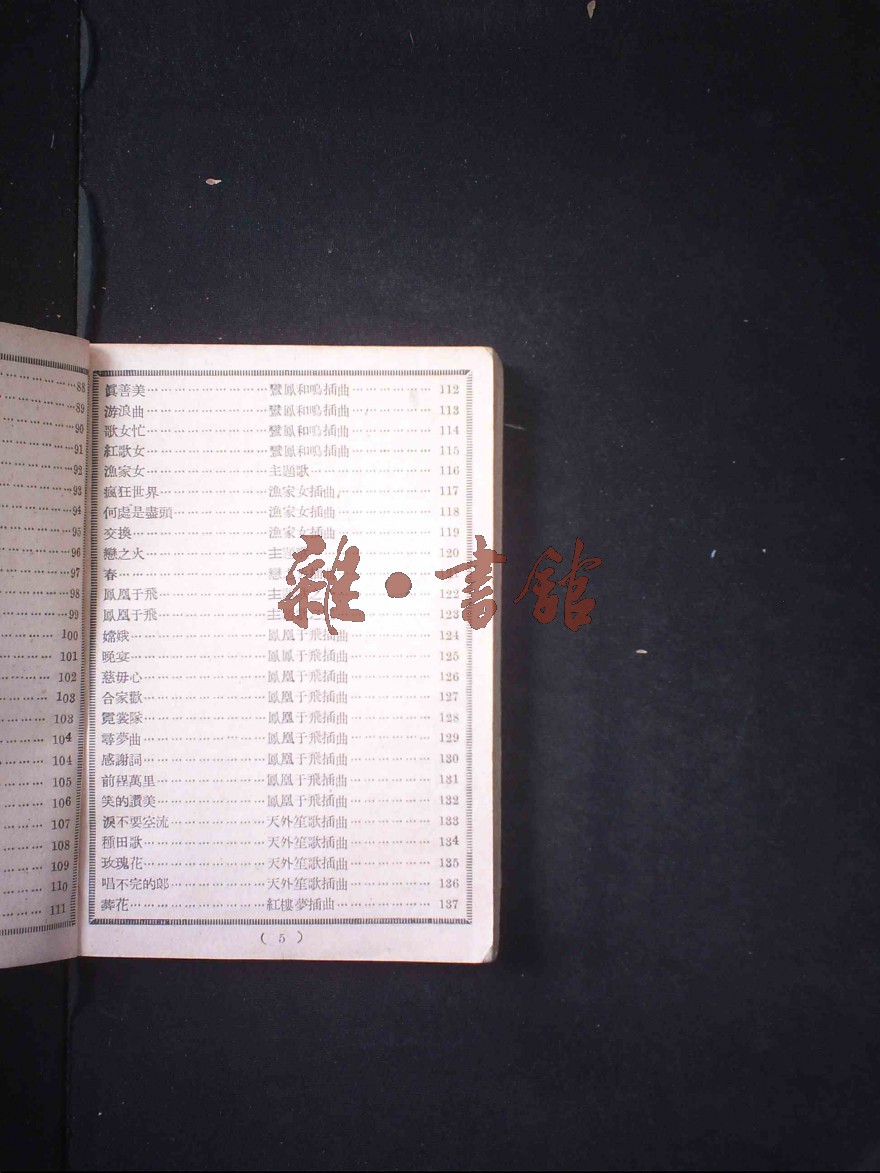 88
89
90
91
92
93
94
95
96
97
98
99
100
101
102
103
103
104
104
105
106
107
108
109
110
111
眞善美⋯⋯⋯⋯⋯⋯⋯⋯鸞鳳和鳴插曲⋯⋯⋯⋯⋯112
游浪曲⋯⋯⋯⋯⋯⋯⋯⋯鸞鳳和鳴插曲⋯⋯⋯⋯⋯113
歌女忙⋯⋯⋯⋯⋯⋯⋯⋯鸞鳳和鳴插曲⋯⋯⋯⋯⋯114
紅歌女⋯⋯⋯⋯⋯⋯⋯⋯鸞鳳和鳴插曲⋯⋯⋯⋯⋯115
漁家女⋯⋯⋯⋯⋯⋯⋯⋯主題歌⋯⋯⋯⋯⋯⋯⋯116
瘋狂世界⋯⋯⋯⋯⋯⋯⋯漁家女插曲⋯⋯⋯⋯⋯117
何處是盡頭⋯⋯⋯⋯⋯⋯漁家女插曲⋯⋯⋯⋯⋯118
交換⋯⋯⋯⋯⋯⋯⋯⋯⋯漁家女插曲⋯⋯⋯⋯⋯119
戀之火⋯⋯⋯⋯⋯⋯⋯⋯主⋯⋯⋯⋯⋯120
春⋯⋯⋯⋯⋯⋯⋯⋯⋯⋯戀
鳳凰于飛⋯⋯⋯⋯⋯⋯⋯主⋯⋯⋯⋯⋯122
鳳凰于飛⋯⋯⋯⋯⋯⋯⋯主⋯⋯⋯⋯⋯123
嫦娥⋯⋯⋯⋯⋯⋯⋯⋯⋯鳳凰于飛插曲⋯⋯⋯⋯⋯124
晚宴⋯⋯⋯⋯⋯⋯⋯⋯⋯鳳鳳于飛插曲⋯⋯⋯⋯⋯125
慈毋心⋯⋯⋯⋯⋯⋯⋯⋯鳳凰于飛插曲⋯⋯⋯⋯⋯126
合家歡⋯⋯⋯⋯⋯⋯⋯⋯鳳凰于飛插曲⋯⋯⋯⋯⋯127
霓裳隊⋯⋯⋯⋯⋯⋯⋯⋯鳳凰于飛插曲⋯⋯⋯⋯⋯128
尋夢曲⋯⋯⋯⋯⋯⋯⋯⋯鳳凰于飛插曲⋯⋯⋯⋯⋯129
感謝詞⋯⋯⋯⋯⋯⋯⋯⋯鳳凰于飛插曲⋯⋯⋯⋯⋯130
前程萬里⋯⋯⋯⋯⋯⋯⋯鳳凰于飛插曲⋯⋯⋯⋯⋯131
笑的讚美⋯⋯⋯⋯⋯⋯⋯鳳凰于飛插曲⋯⋯⋯⋯⋯132
淚不要空流⋯⋯⋯⋯⋯⋯天外笙歌插曲⋯⋯⋯⋯⋯133
種田歌⋯⋯⋯⋯⋯⋯⋯⋯天外笙歌插曲⋯⋯⋯⋯⋯134
玫瑰花⋯⋯⋯⋯⋯⋯⋯⋯天外笙歌插曲⋯⋯⋯⋯⋯135
唱不完的郎⋯⋯⋯⋯⋯⋯天外笙歌插曲⋯⋯⋯⋯⋯136
葬花⋯⋯⋯⋯⋯⋯⋯⋯⋯紅樓夢插曲⋯⋯⋯⋯⋯137
( 5 )
雜·書館